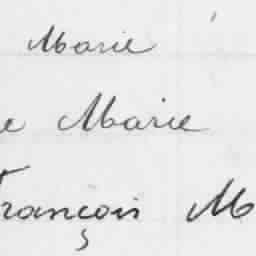 Marie
e Marie
François M